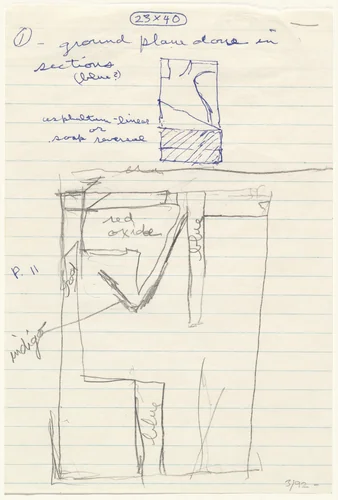 23 x 40
① - ground plane done in
sections
(blue?)
asphaltum - linear
or
soap reversal
red
oxide
blue
red
P. 11
indigo
blue
3/92 -